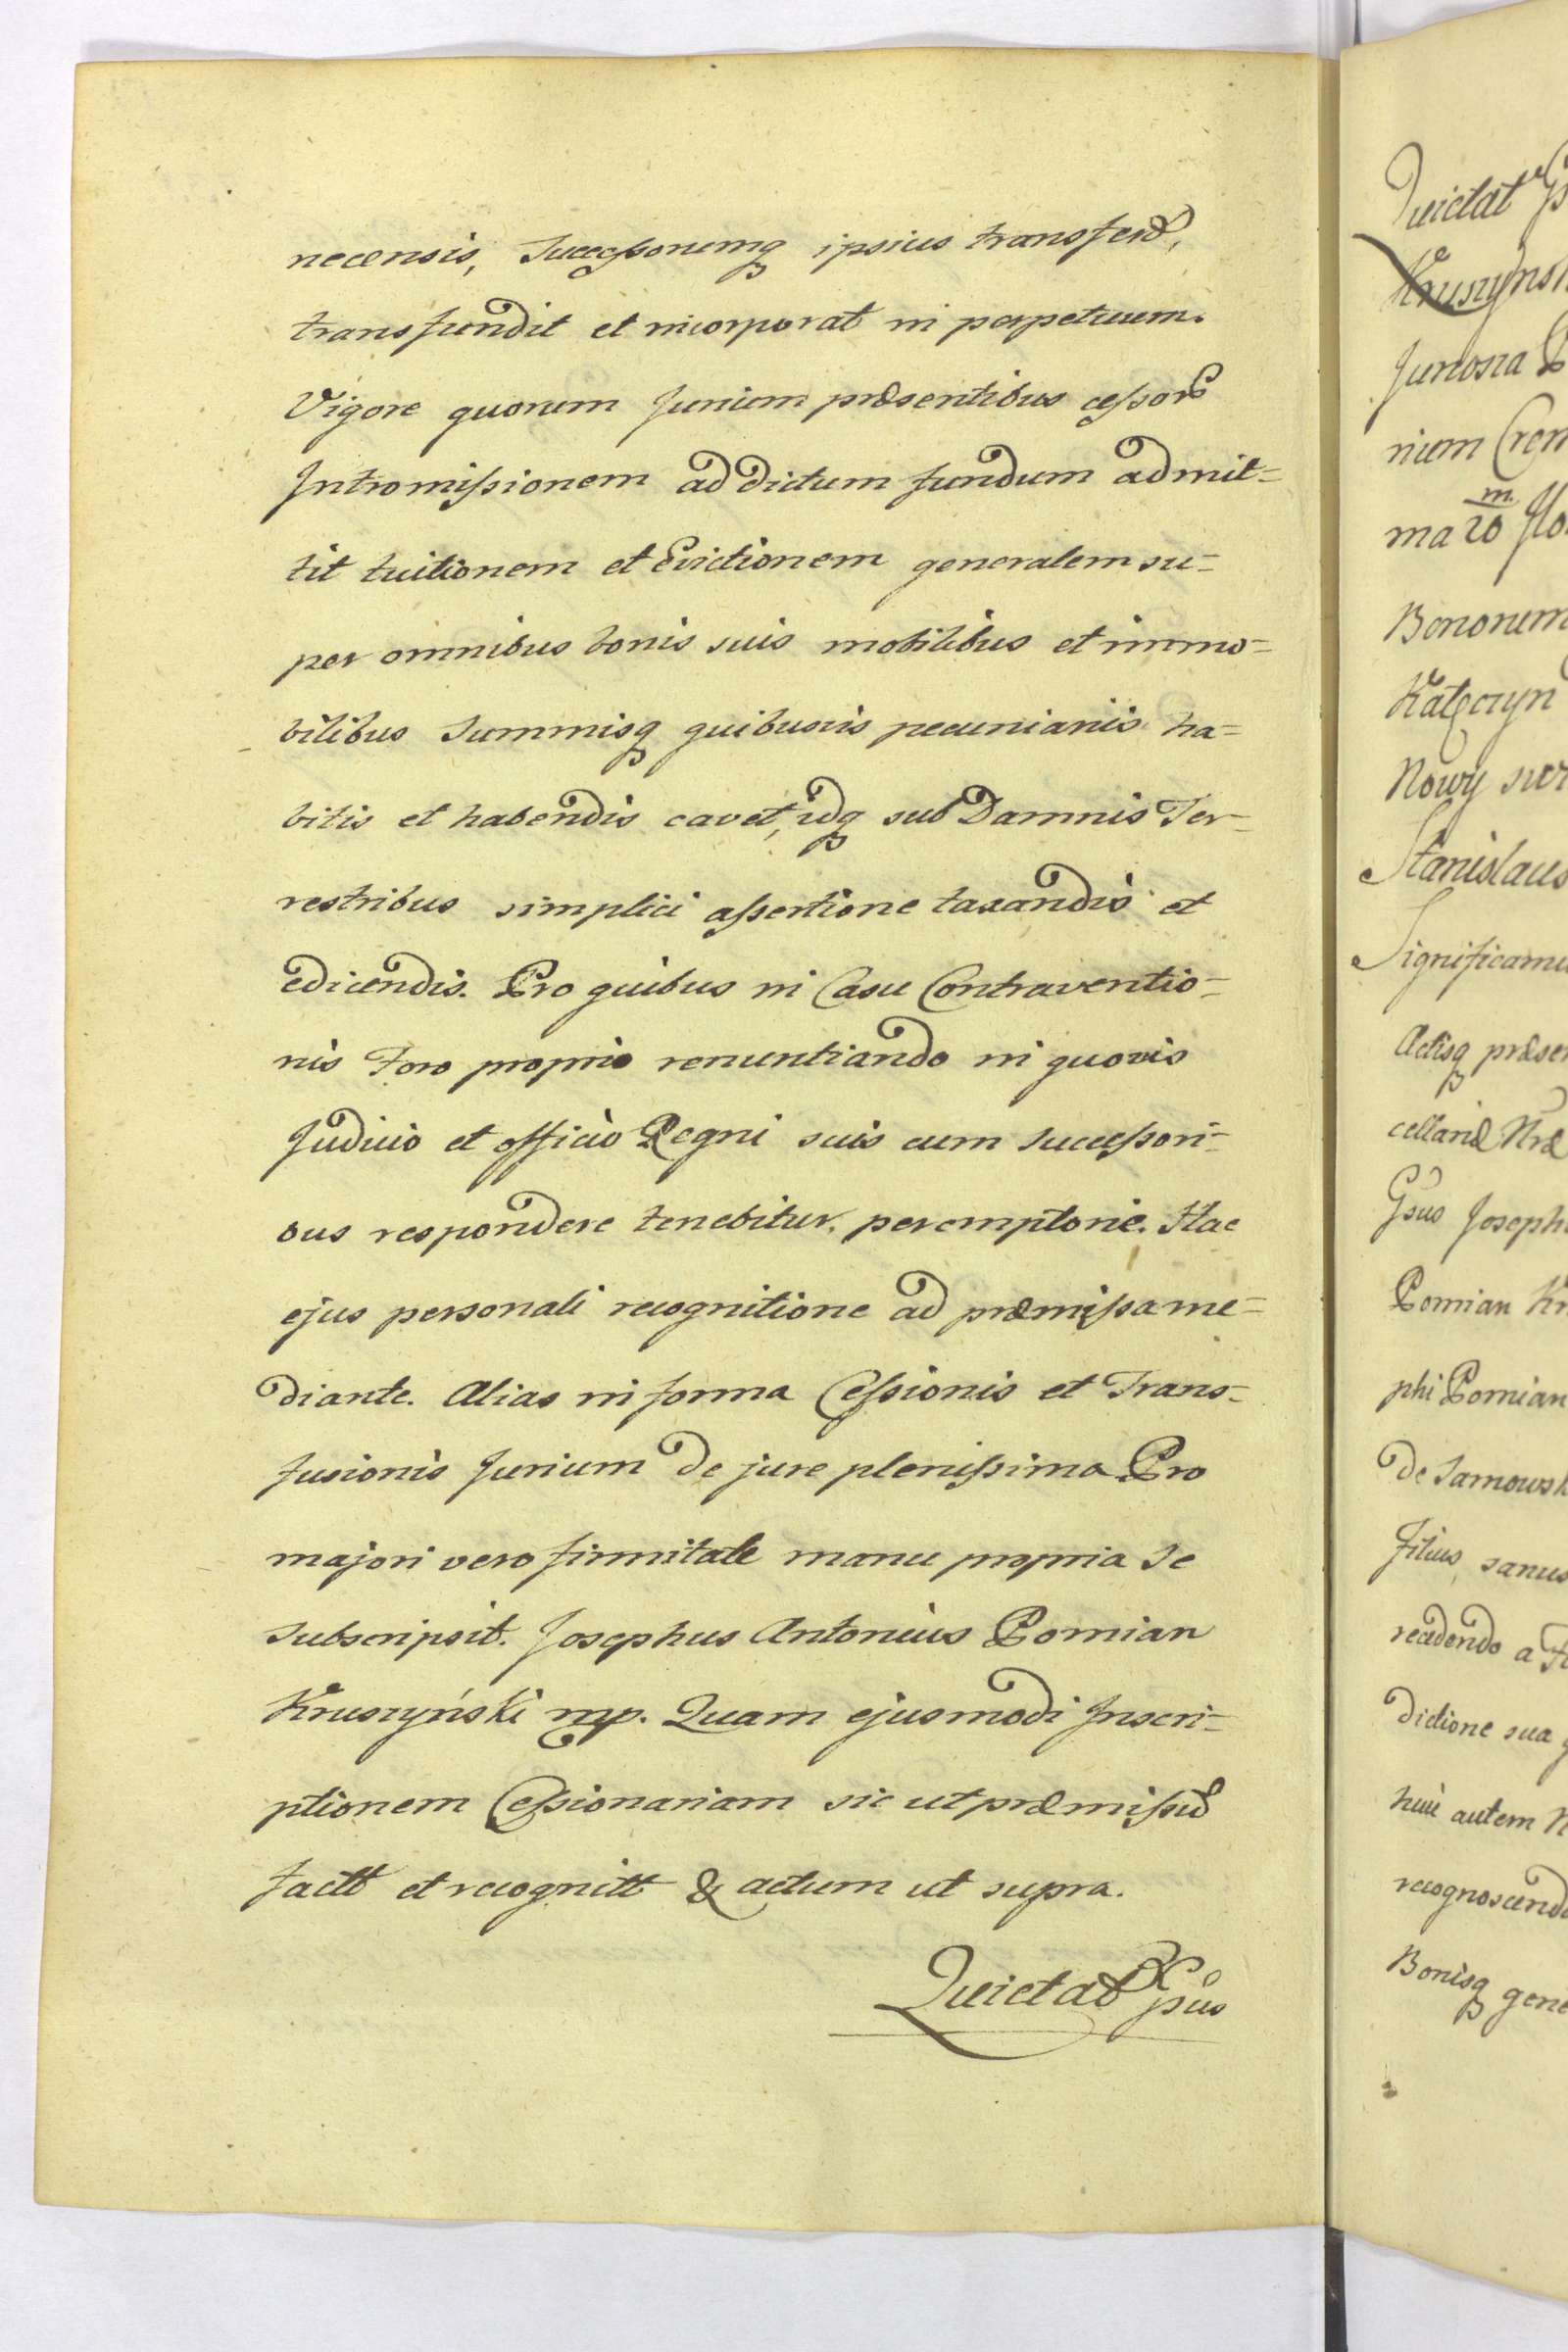 necensis, Successorumq ipsius transferd,
transfundit et incorporat in perpetuum.
Vigore quorum Jurium præsentibus cessors
Intromissionem ad dictum fundum admit=
tit tuitionem et Evictionem generalem su=
per omnibus bonis suis mobilibus et immo=
bilibus Summisq quibusvis pecuniariis ha=
bitis et habendis cavet, idq sub Damnis Ter=
restribus simplici assertione taxandis et
edicendis. Pro quibus in Casu Contraventio=
nis Foro proprio renuntiando in quovis
Judicio et officio Regni suis cum Successori=
bus respondere tenebitur. peremptorie. Hac
ejus personali recognitione ad præmissa me=
diante. Alias in forma Cessionis et Trans=
fusionis Jurium de jure plenissima Pro
majori vero firmitate manu propria Se
Subscripsit. Josephus Antonius Pomian
Kruszyński mp. Quam ejusmodi Inscri=
ptionem Cessionariam sic ut præmissũ
factt et recognitt & actum ut supra.
Quietat Gsus
Quietat Gs
Kruszyns
Junosza P
rium Crem
ma 20 m. flo
Bonorum
Katęczyn
Nowy sive
Stanislaus
Significamu
Actisq præse
cellariæ Nræ
Gsus Joseph
Pomian Kr
phi Pomian
de Sarnowsk
Filius, sanus
recedendo a Fo
dictione sua
huic autem N
recognoscend
Bonisq gene